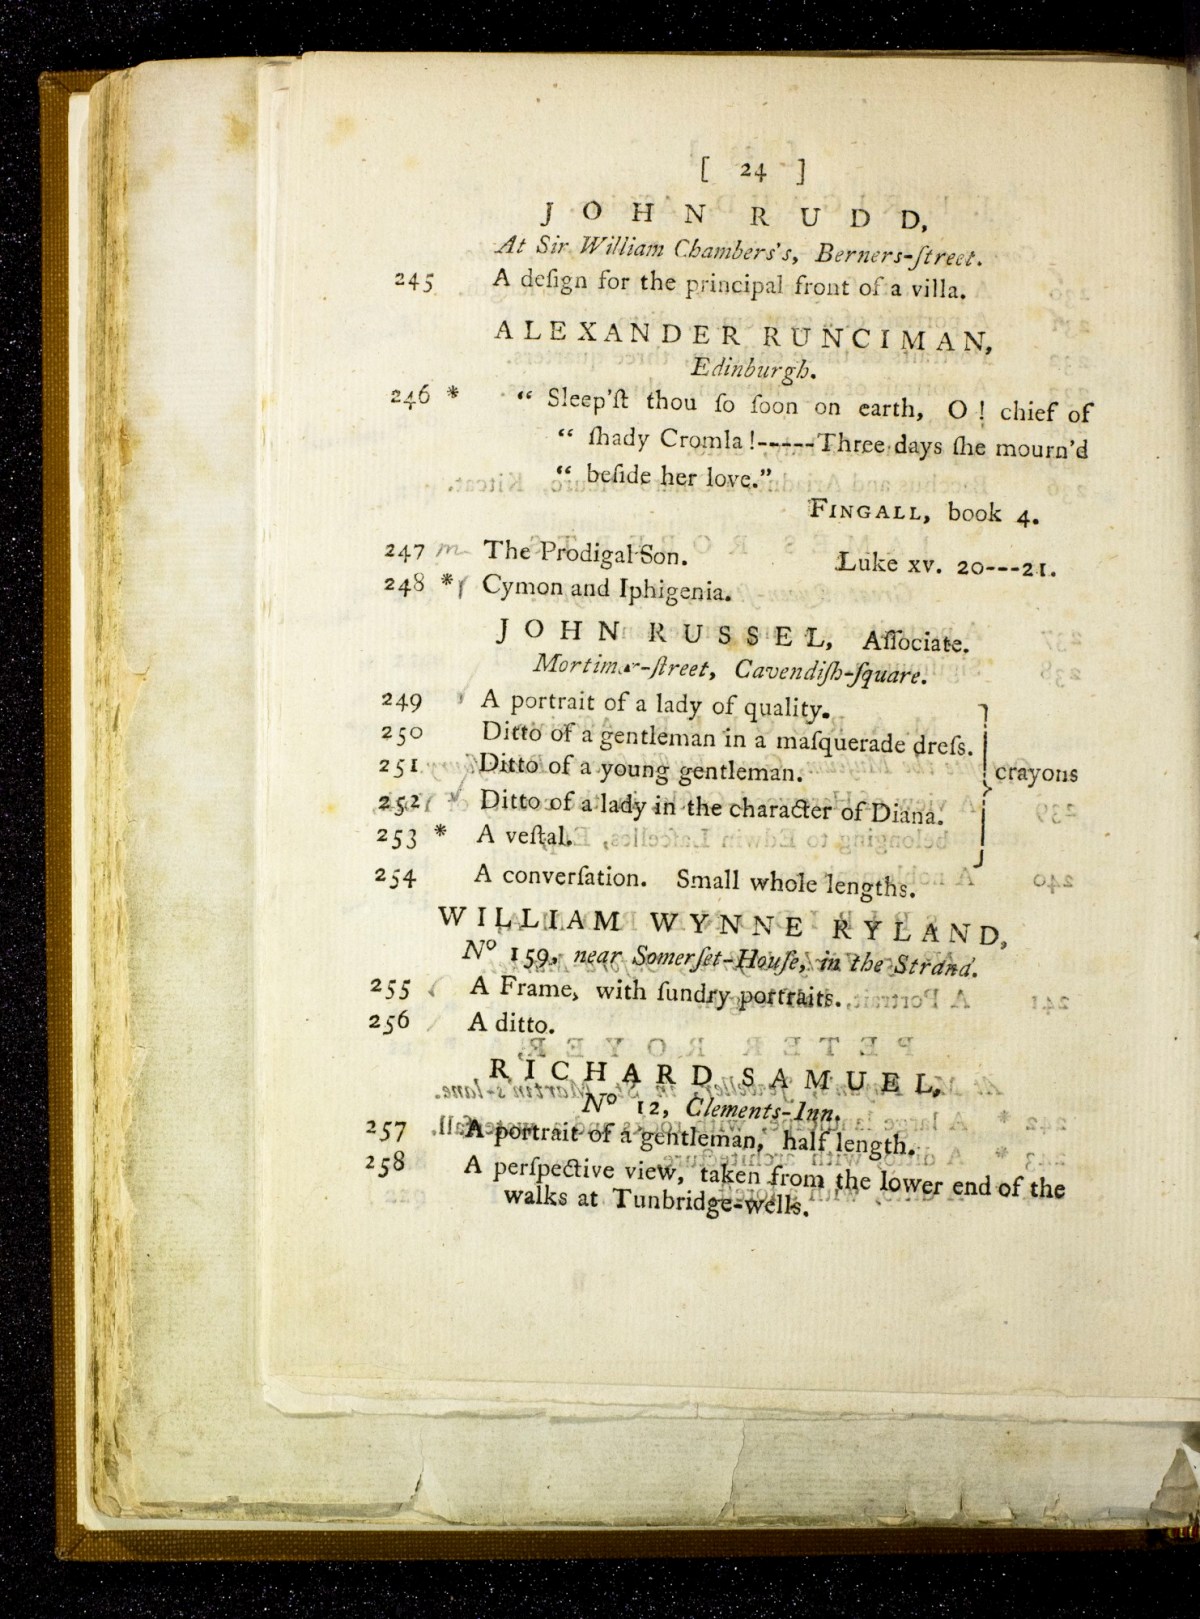 [ 24 ]
JOHN RUDD,
At Sir William Chambers's, Berners-ſtreet.
245 A deſign for the principal front of a villa.
ALEXANDER RUNCIMAN,
Edinburgh.
246 * “ Sleep'ſt thou ſo ſoon on earth, O ! chief of
“ ſhady Cromla !-----Three days ſhe mourn'd
“ beſide her love.”
FINGALL, book 4.
247 m The Prodigal Son. Luke xv. 20---21.
248 * Cymon and Iphigenia.
JOHN RUSSEL, Aſſociate.
Mortimer-ſtreet, Cavendiſh-ſquare.
249 A portrait of a lady of quality.
250 Ditto of a gentleman in a maſquerade dreſs.
251 Ditto of a young gentleman.
crayons
252 Ditto of a lady in the character of Diana.
253 * A veſtal.
254 A converſation. Small whole lengths.
WILLIAM WYNNE RYLAND,
No 159, near Somerſet-Houſe, in the Strand.
255 A Frame, with ſundry portraits.
256 A ditto.
RICHARD SAMUEL,
No 12, Clements-Inn.
257 A portrait of a gentleman, half length.
258 A perſpective view, taken from the lower end of the
walks at Tunbridge-wells.